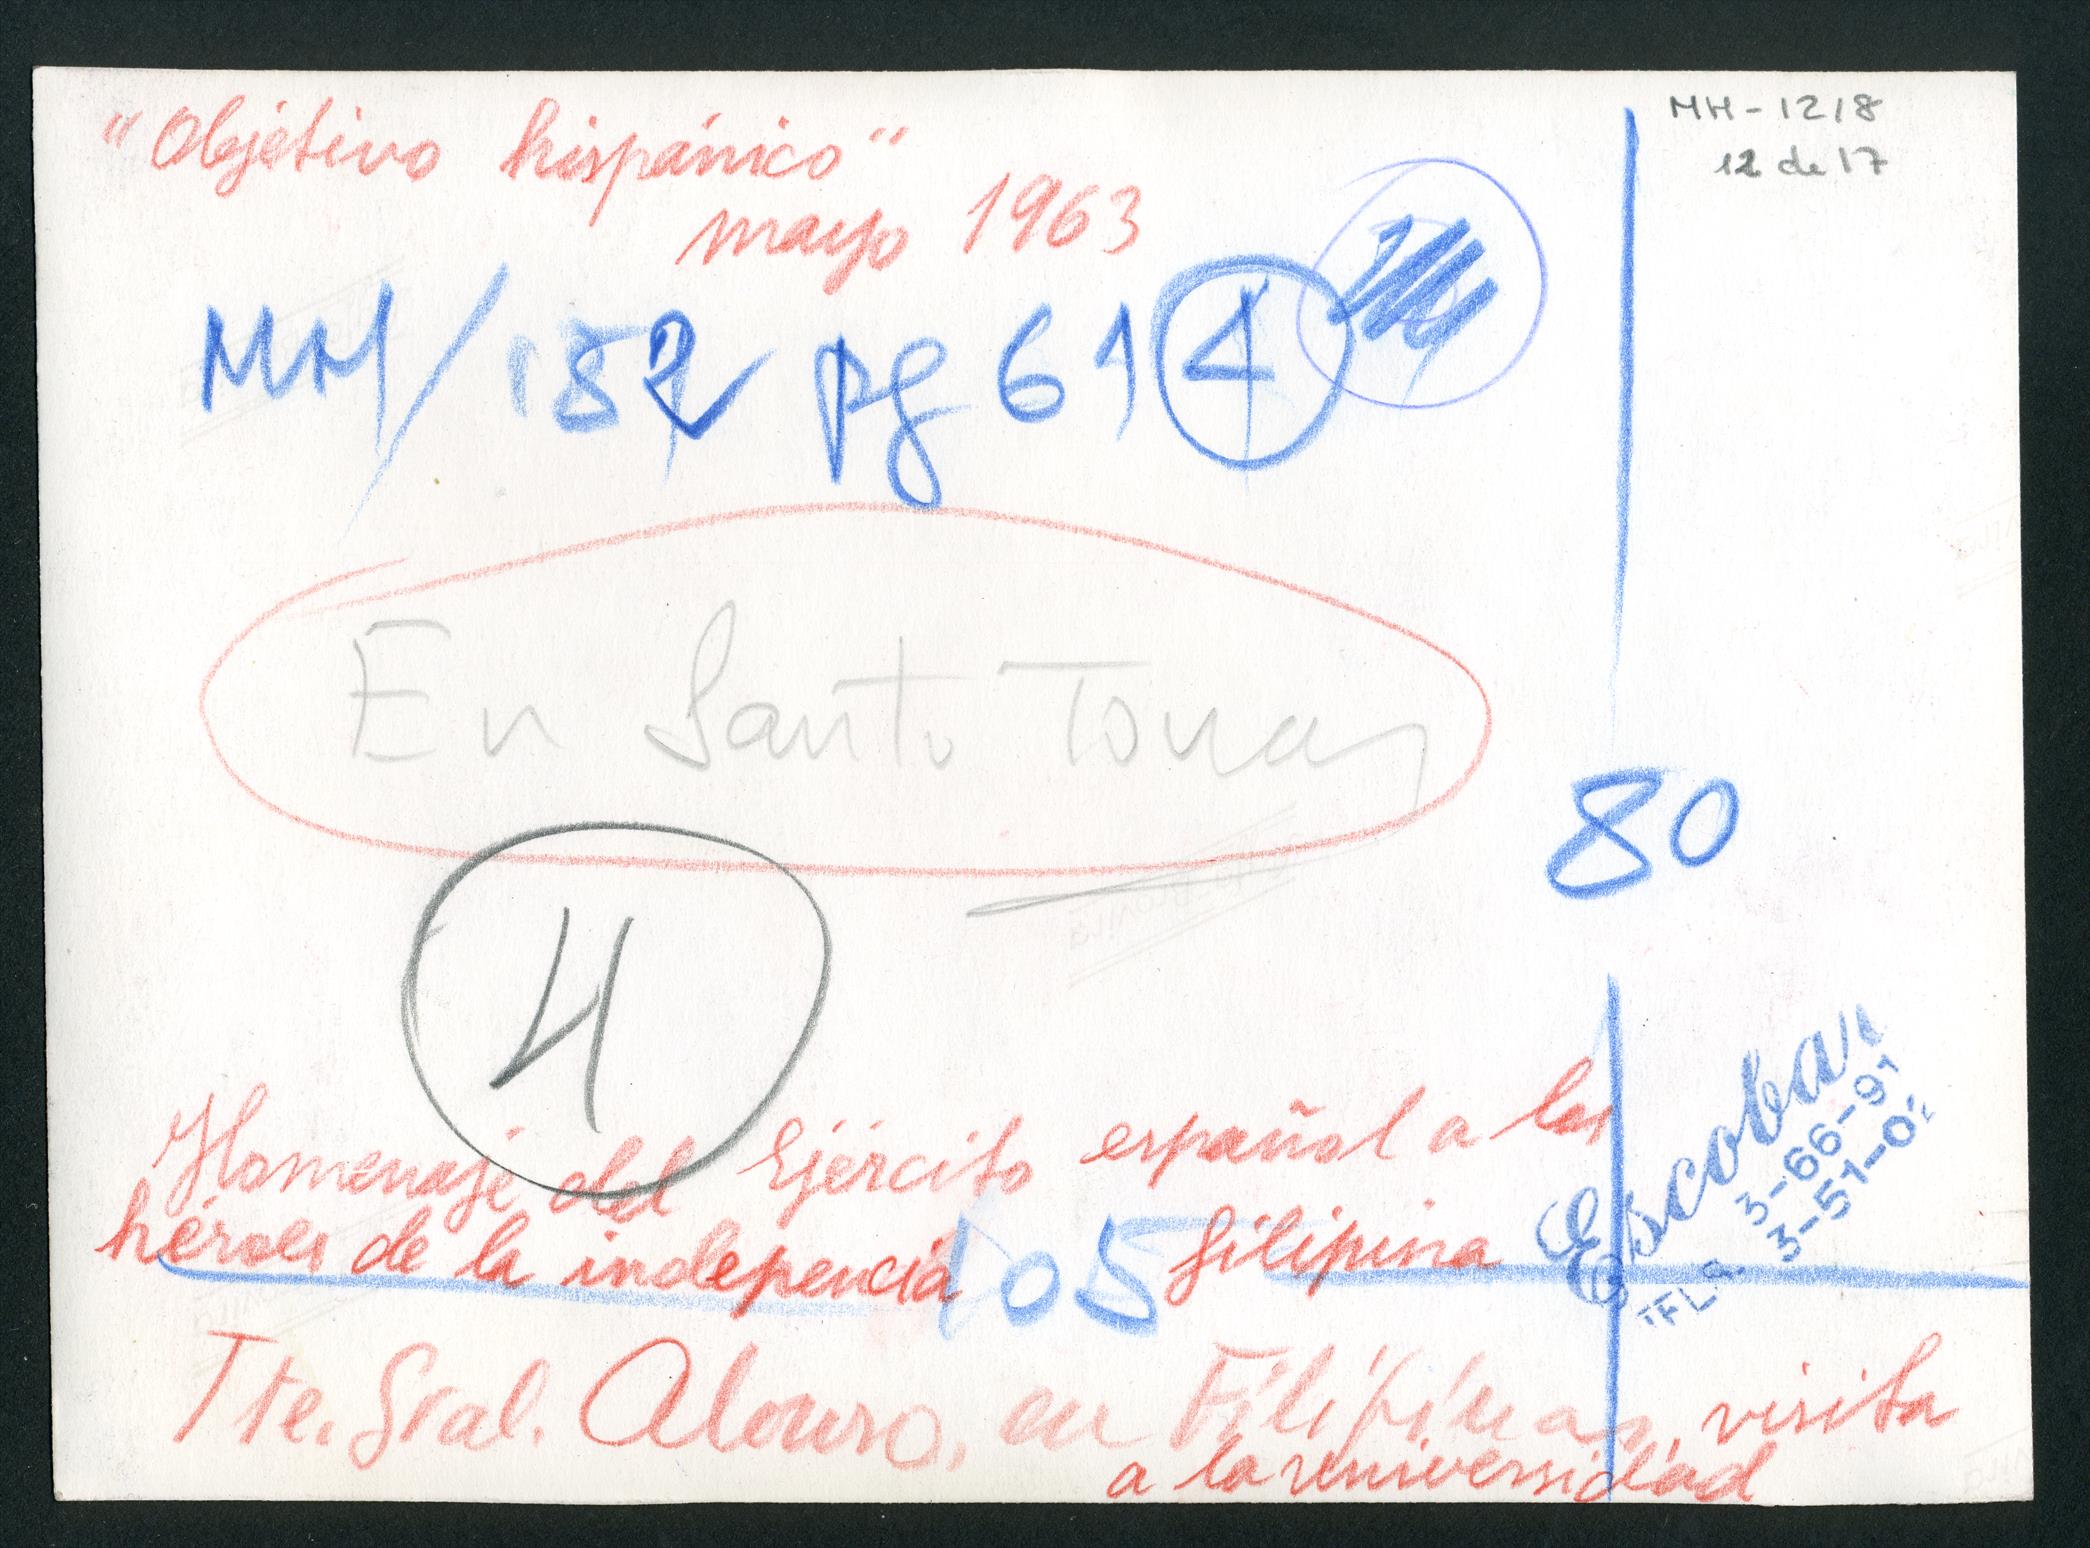 "Objetivo hispánico"
mayo 1963
MH-1218
12 de 17
MH/182 pg 61 4
En Santo Tomas
80
4
Homenaje del Ejército español a los
héroes de la indepencia filipina
105
Escobar
TFLS. 3-66-91
3-51-02
Tte. Gral. Alonso, en Filipinas, visita
a la universidad